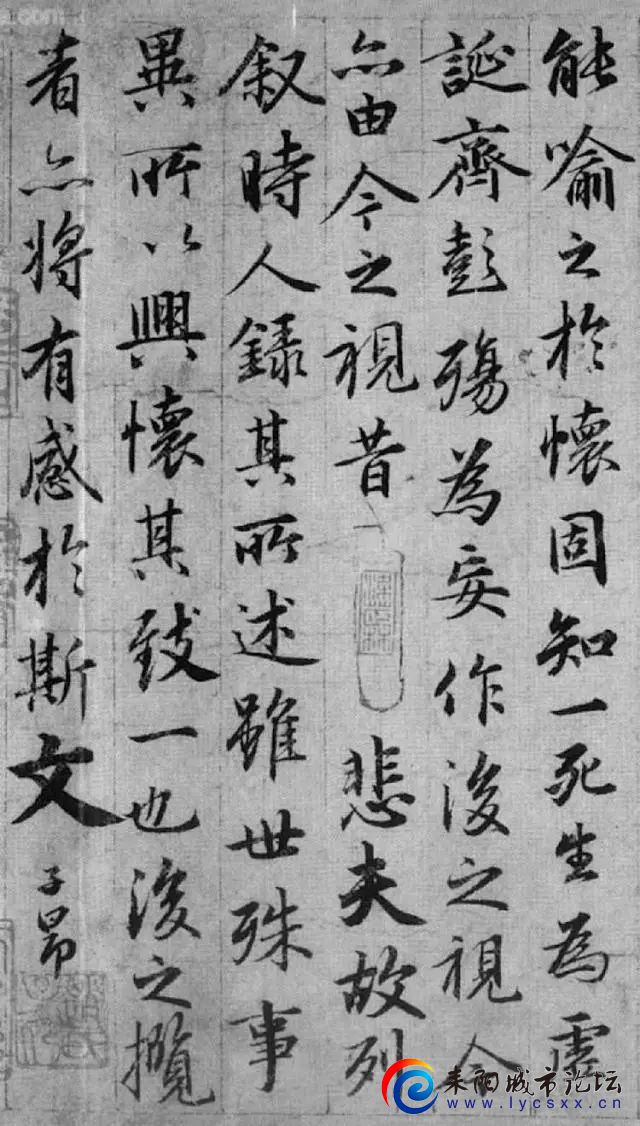 能喻之於懷固知一死生為虛
誕齊彭殤為妄作後之視今
亦由今之視昔
悲夫故列
叙時人錄其所述雖世殊事
異所以興懷其致一也後之攬
者亦將有感於斯文
子昂
耒阳城市论坛
www.lycsxx.cn
.com